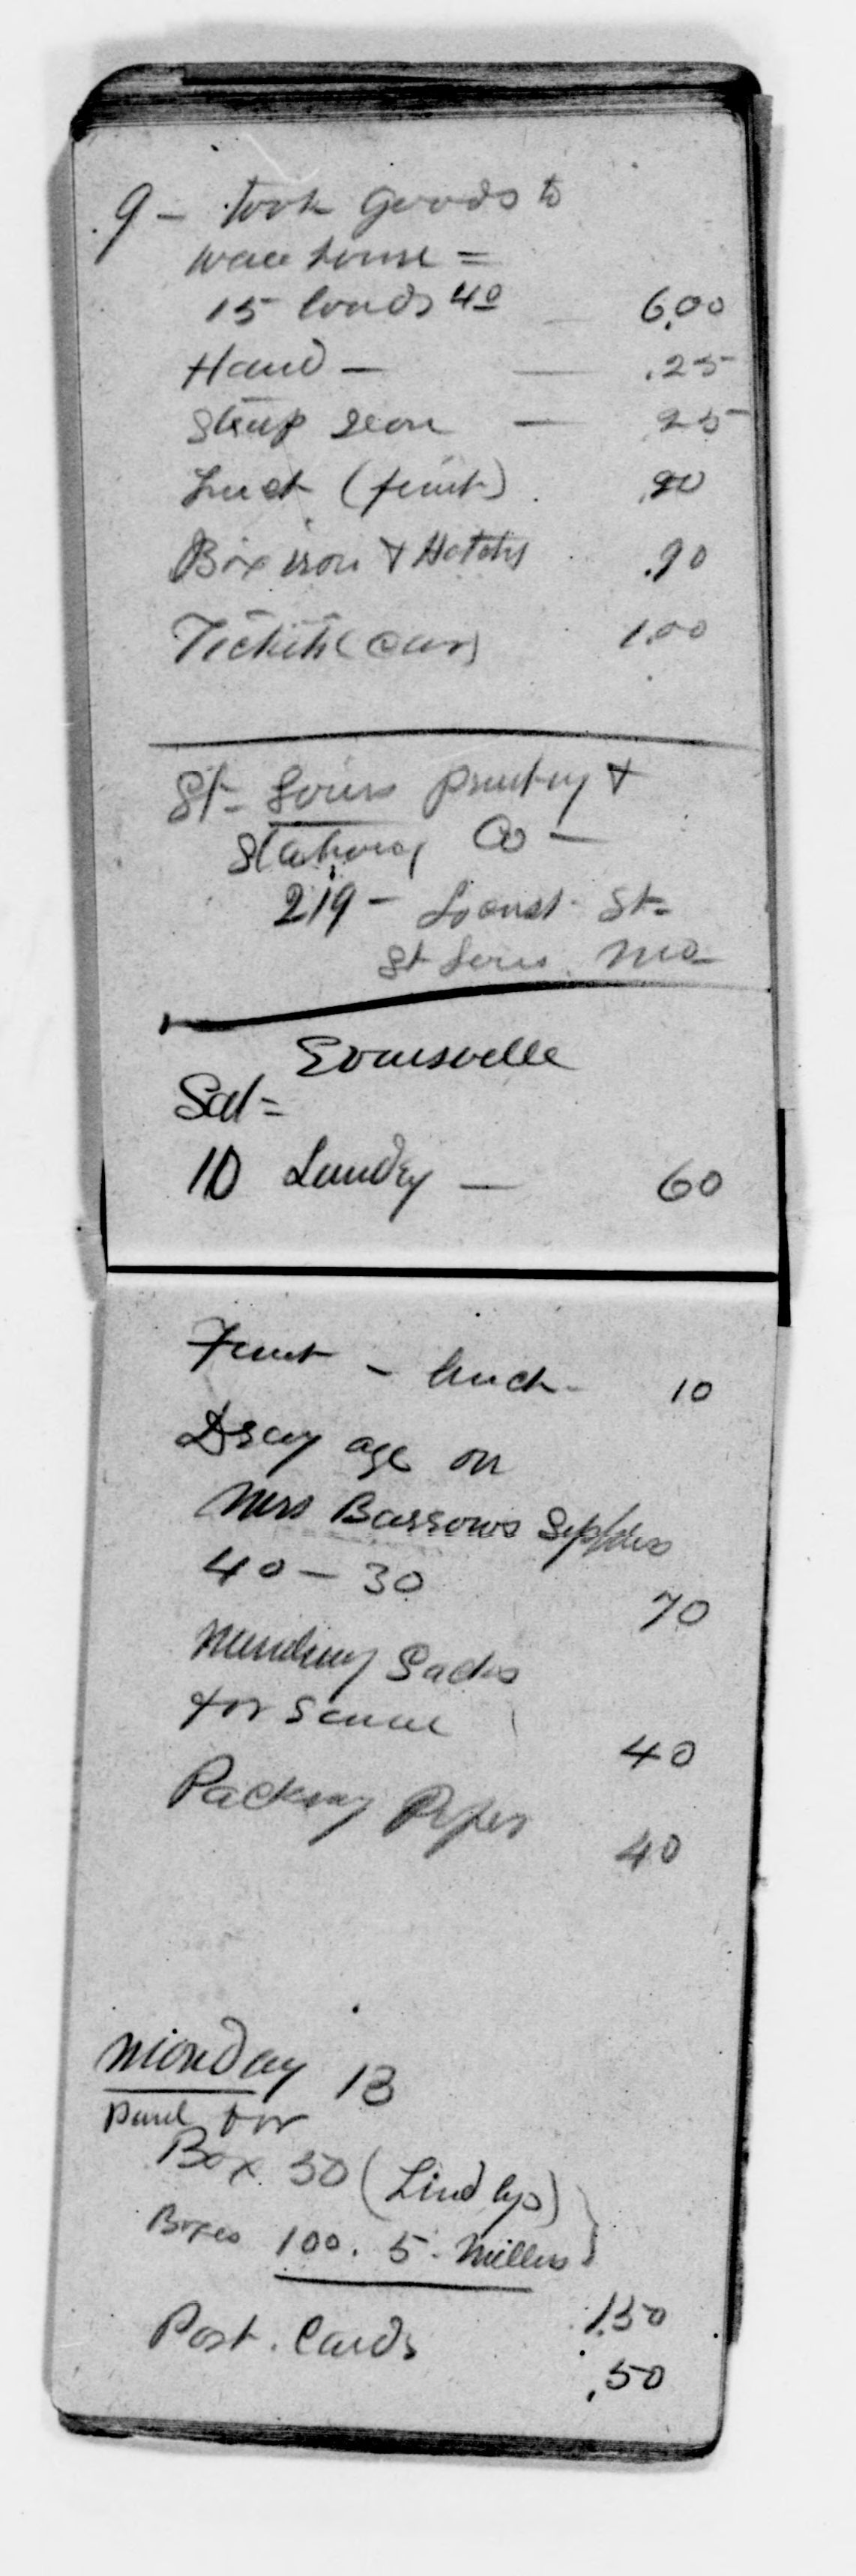 9 - took goods to
warehouse =
15 loads 40 - 6.00
Hand - - .25
Strap Iron - 25
Lunch (fruit) . .20
Box iron & Hatchs .90
Tickets (car) 1.00
St - Louis printing &
Stationery Co -
219 - Locust St -
St Louis Mo -
Evansville
Sat =
10 Laundry - 60
Fruit - lunch - 10
Dray age on
Mrs Barrows Supplies
40 - 30
70
Mending Sacks
for same
40
Packing Paper
40
Monday 13
paid for
Box 50 (Lindleys)
Boxes 100. 5. Millers
1.50
Post. Cards
.50